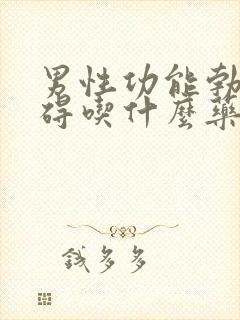 男性功能勃
碍喫什麼藥
錢多多